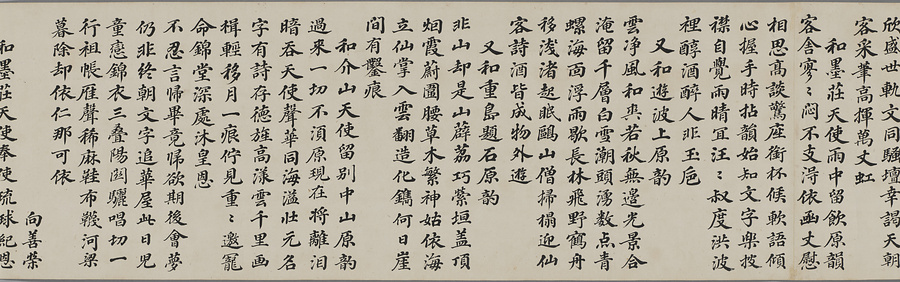 欣盛世軌文同騷壇幸謁天朝
客采華高揮萬丈虹
和墨莊天使雨中留飲原韻
客舍寥々悶不支淂依函丈慰
相思高談驚座銜杯候軟語傾
心握手時拈韻始知文字樂披
襟自覺雨晴宜汪々叔度洪波
裡醇酒醉人非玉卮
又和遊波上原韵
雲净風和爽若秋無邊光景合
淹留千層白雪潮頭湧数点青
螺海面浮雨歇長林飛野鶴舟
移浅渚起眠鷗山僧掃榻迎仙
客詩酒皆成物外遊
又和重島題石原韵
非山却是山薜荔巧縈垣盖頂
烟霞蔚圍腰草木繁神姑依海
立仙掌入雲翻造化鐫何日崖
間有鑿痕
和介山天使留别中山原韵
過来一切不湏原現在将離泪
暗吞天使聲華同海溢壯元名
字有詩存德旌高漾雲千里画
楫輕移月一痕佇見重々邀寵
命錦堂深處沐皇恩
不忍言歸畢竟歸欲期後會夢
仍非終朝文字追華屋此日児
童戀錦衣三叠陽関驪唱切一
行祖帳雁聲稀麻鞋布韈河梁
暮除却依仁那可依
向善榮
和墨莊天使奉使琉球紀恩